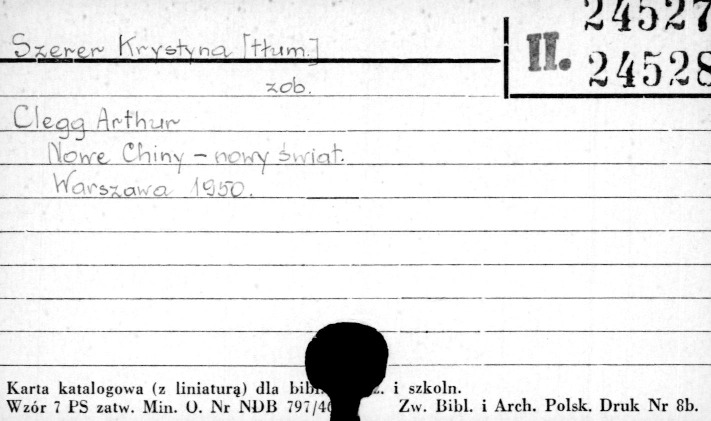 24527
Szerer Krystyna [tłum.]
II. 24528
zob.
Clegg Arthur
Nowe Chiny – nowy świat.
Warszawa 1950.
Karta katalogowa (z liniaturą) dla i szkoln.
Wzór 7 PS zatw. Min. O. Nr NDB Zw. Bibl. i Arch. Polsk. Druk Nr 8b.